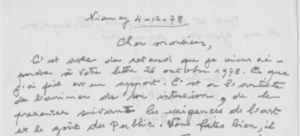 Niamey 4-12-78
Cher monsieur,
C'est avec du retard que je viens ré-
pondre à votre lettre de octobre 1978. Ce que
j'ai fait est un apport. C'est à l'artiste
de l'animer de son intuition, de le
présenter suivant les exigences de l'art
et le goût du Public. Vous faites bien, il